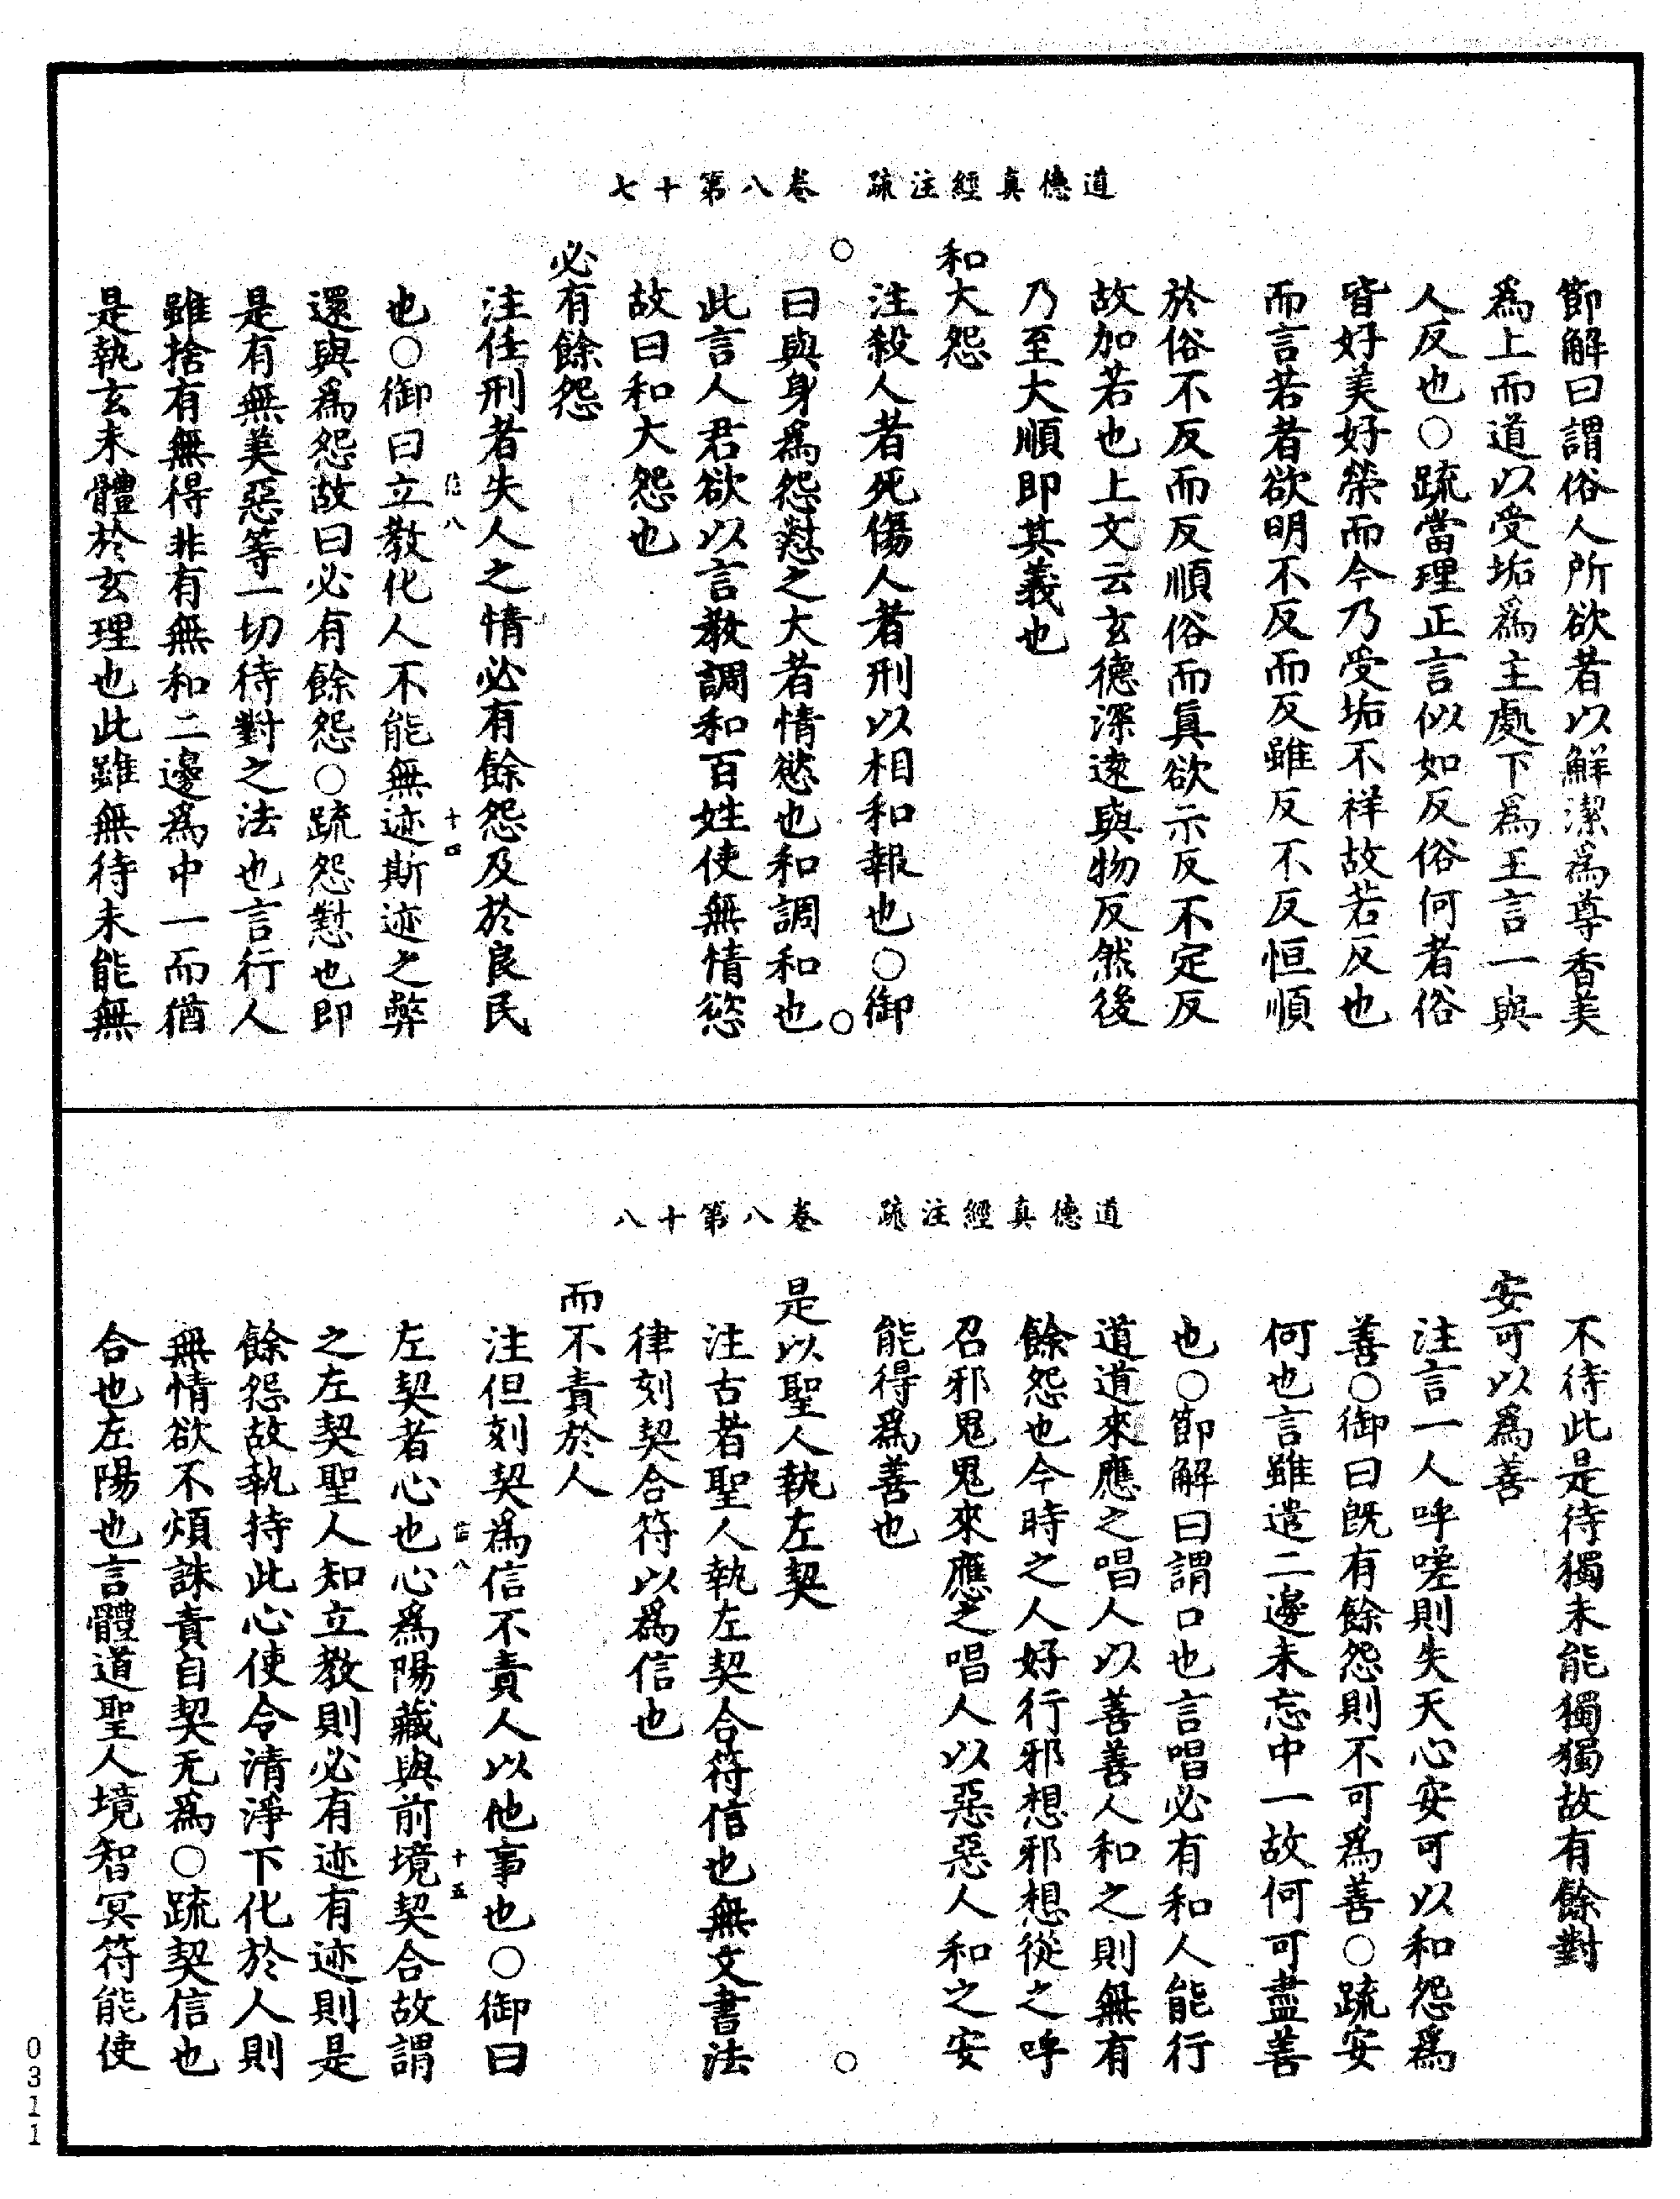 道德真經注疏　卷八第十七
節解曰謂俗人所欲者以鮮潔爲尊香美
爲上而道以受垢爲主處下爲王言一與
人反也○疏當理正言似如反俗何者俗
皆好美好榮而今乃受垢不祥故若反也
而言若者欲明不反而反雖反不反恒順
於俗不反而反順俗而眞欲示反不定反
故加若也上文云玄德深遠與物反然後
乃至大順即其義也
和大怨
注殺人者死傷人者刑以相和報也○御
曰與身爲怨懟之大者情慾也和調和也
此言人君欲以言教調和百姓使無情慾
故曰和大怨也
必有餘怨
注任刑者失人之情必有餘怨及於良民
信八　十四
也○御曰立教化人不能無迹斯迹之弊
還與爲怨故曰必有餘怨○疏怨懟也即
是有無美惡等一切待對之法也言行人
雖捨有無得非有無和二邊爲中一而猶
是執玄未體於玄理也此雖無待未能無
道德真經注疏　卷八第十八
不待此是待獨未能獨獨故有餘對
安可以爲善
注言一人呼嗟則失天心安可以和怨爲
善○御曰旣有餘怨則不可爲善○疏安
何也言雖遣二邊未忘中一故何可盡善
也○節解曰謂口也言唱必有和人能行
道道來應之唱人以善善人和之則無有
餘怨也今時之人好行邪想邪想從之呼
召邪鬼鬼來應之唱人以惡惡人和之安
能得爲善也
是以聖人執左契
注古者聖人執左契合符信也無文書法
律刻契合符以爲信也
而不責於人
注但刻契爲信不責人以他事也○御曰
信八　十五
左契者心也心爲陽藏與前境契合故謂
之左契聖人知立教則必有迹有迹則是
餘怨故執持此心使令清淨下化於人則
無情欲不煩誅責自契无爲○疏契信也
合也左陽也言體道聖人境智冥符能使
0311